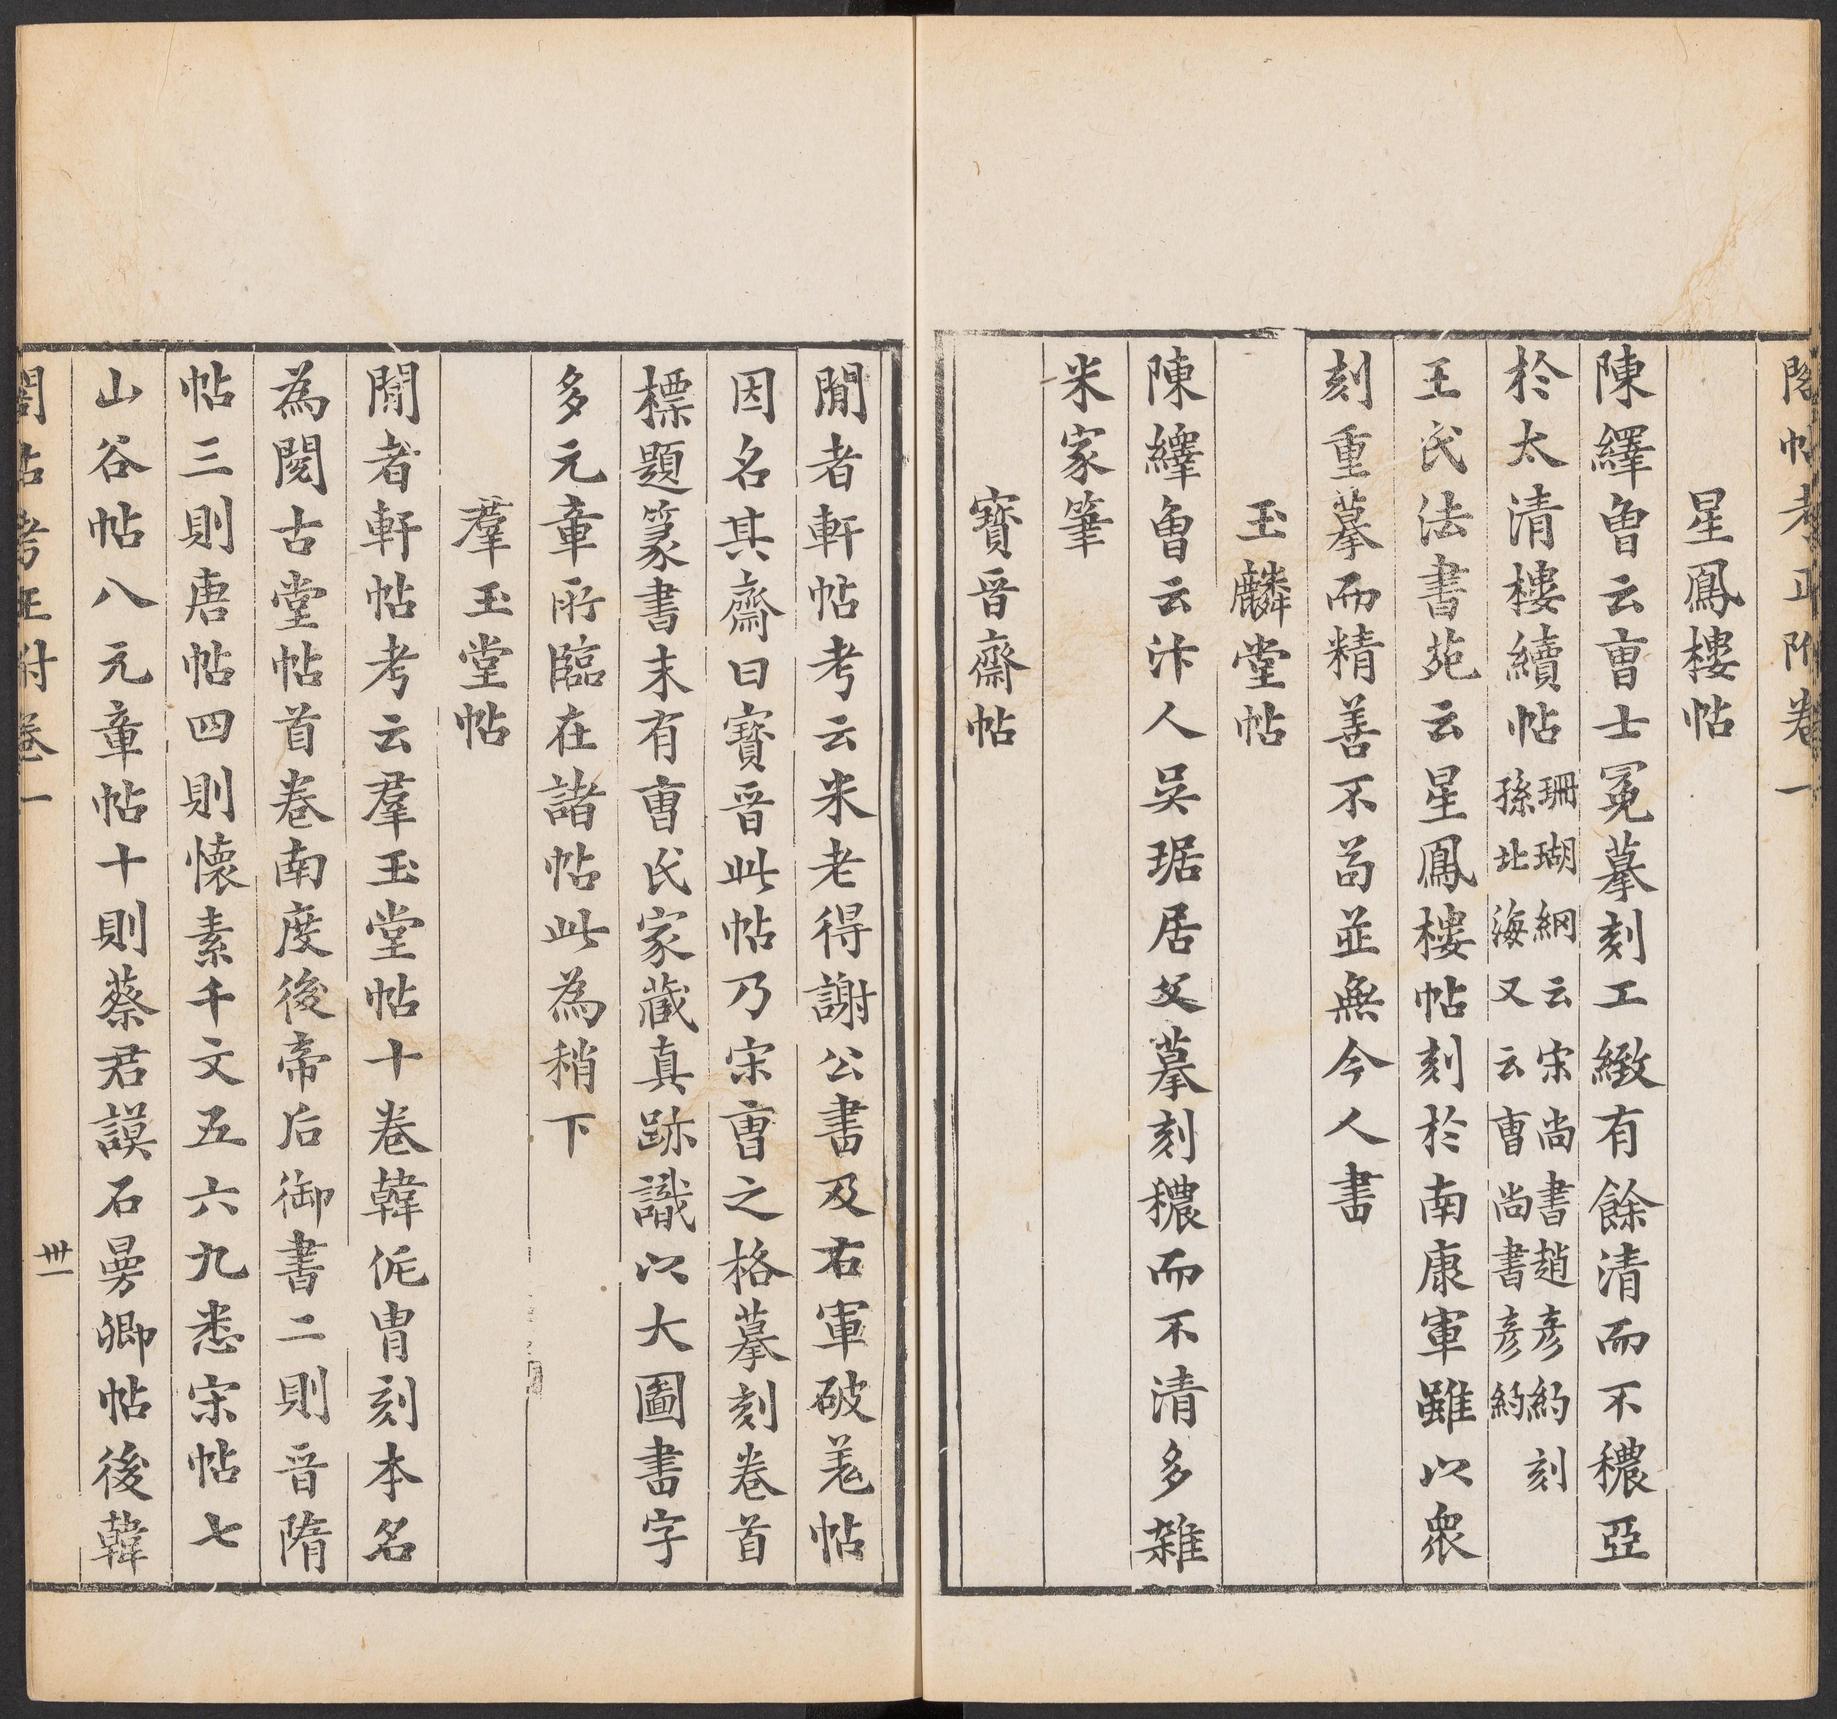 閣帖考正附卷一
星鳳樓帖
陳繹曾云曹士冕摹刻工緻有餘清而不穠亞
於太清樓續帖珊瑚網云宋尚書趙彥約刻孫北海又云曹尚書彥約
王氏法書苑云星鳳樓帖刻於南康軍雖以衆
刻重摹而精善不苟並無今人書
玉麟堂帖
陳繹曾云汴人吳琚居父摹刻穠而不清多雜
米家筆
寶晉齋帖
閒者軒帖考云米老得謝公書及右軍破羌帖
因名其齋曰寶晉此帖乃宋曹之格摹刻卷首
標題篆書末有曹氏家藏真跡識以大圖書字
多元章所臨在諸帖此為稍下
羣玉堂帖
閒者軒帖考云羣玉堂帖十卷韓侂冑刻本名
為閱古堂帖首卷南度後帝后御書二則晉隋
帖三則唐帖四則懷素千文五六九悉宋帖七
山谷帖八元章帖十則蔡君謨石曼卿帖後韓
閣帖考正附卷一
卅一